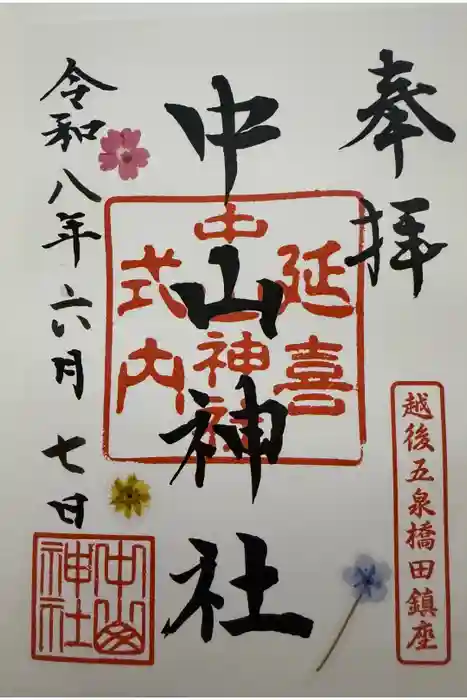 奉拝
越後五泉橋田鎮座
延喜
中山神社
式内
中山神社
令和八年六月七日
中山神社